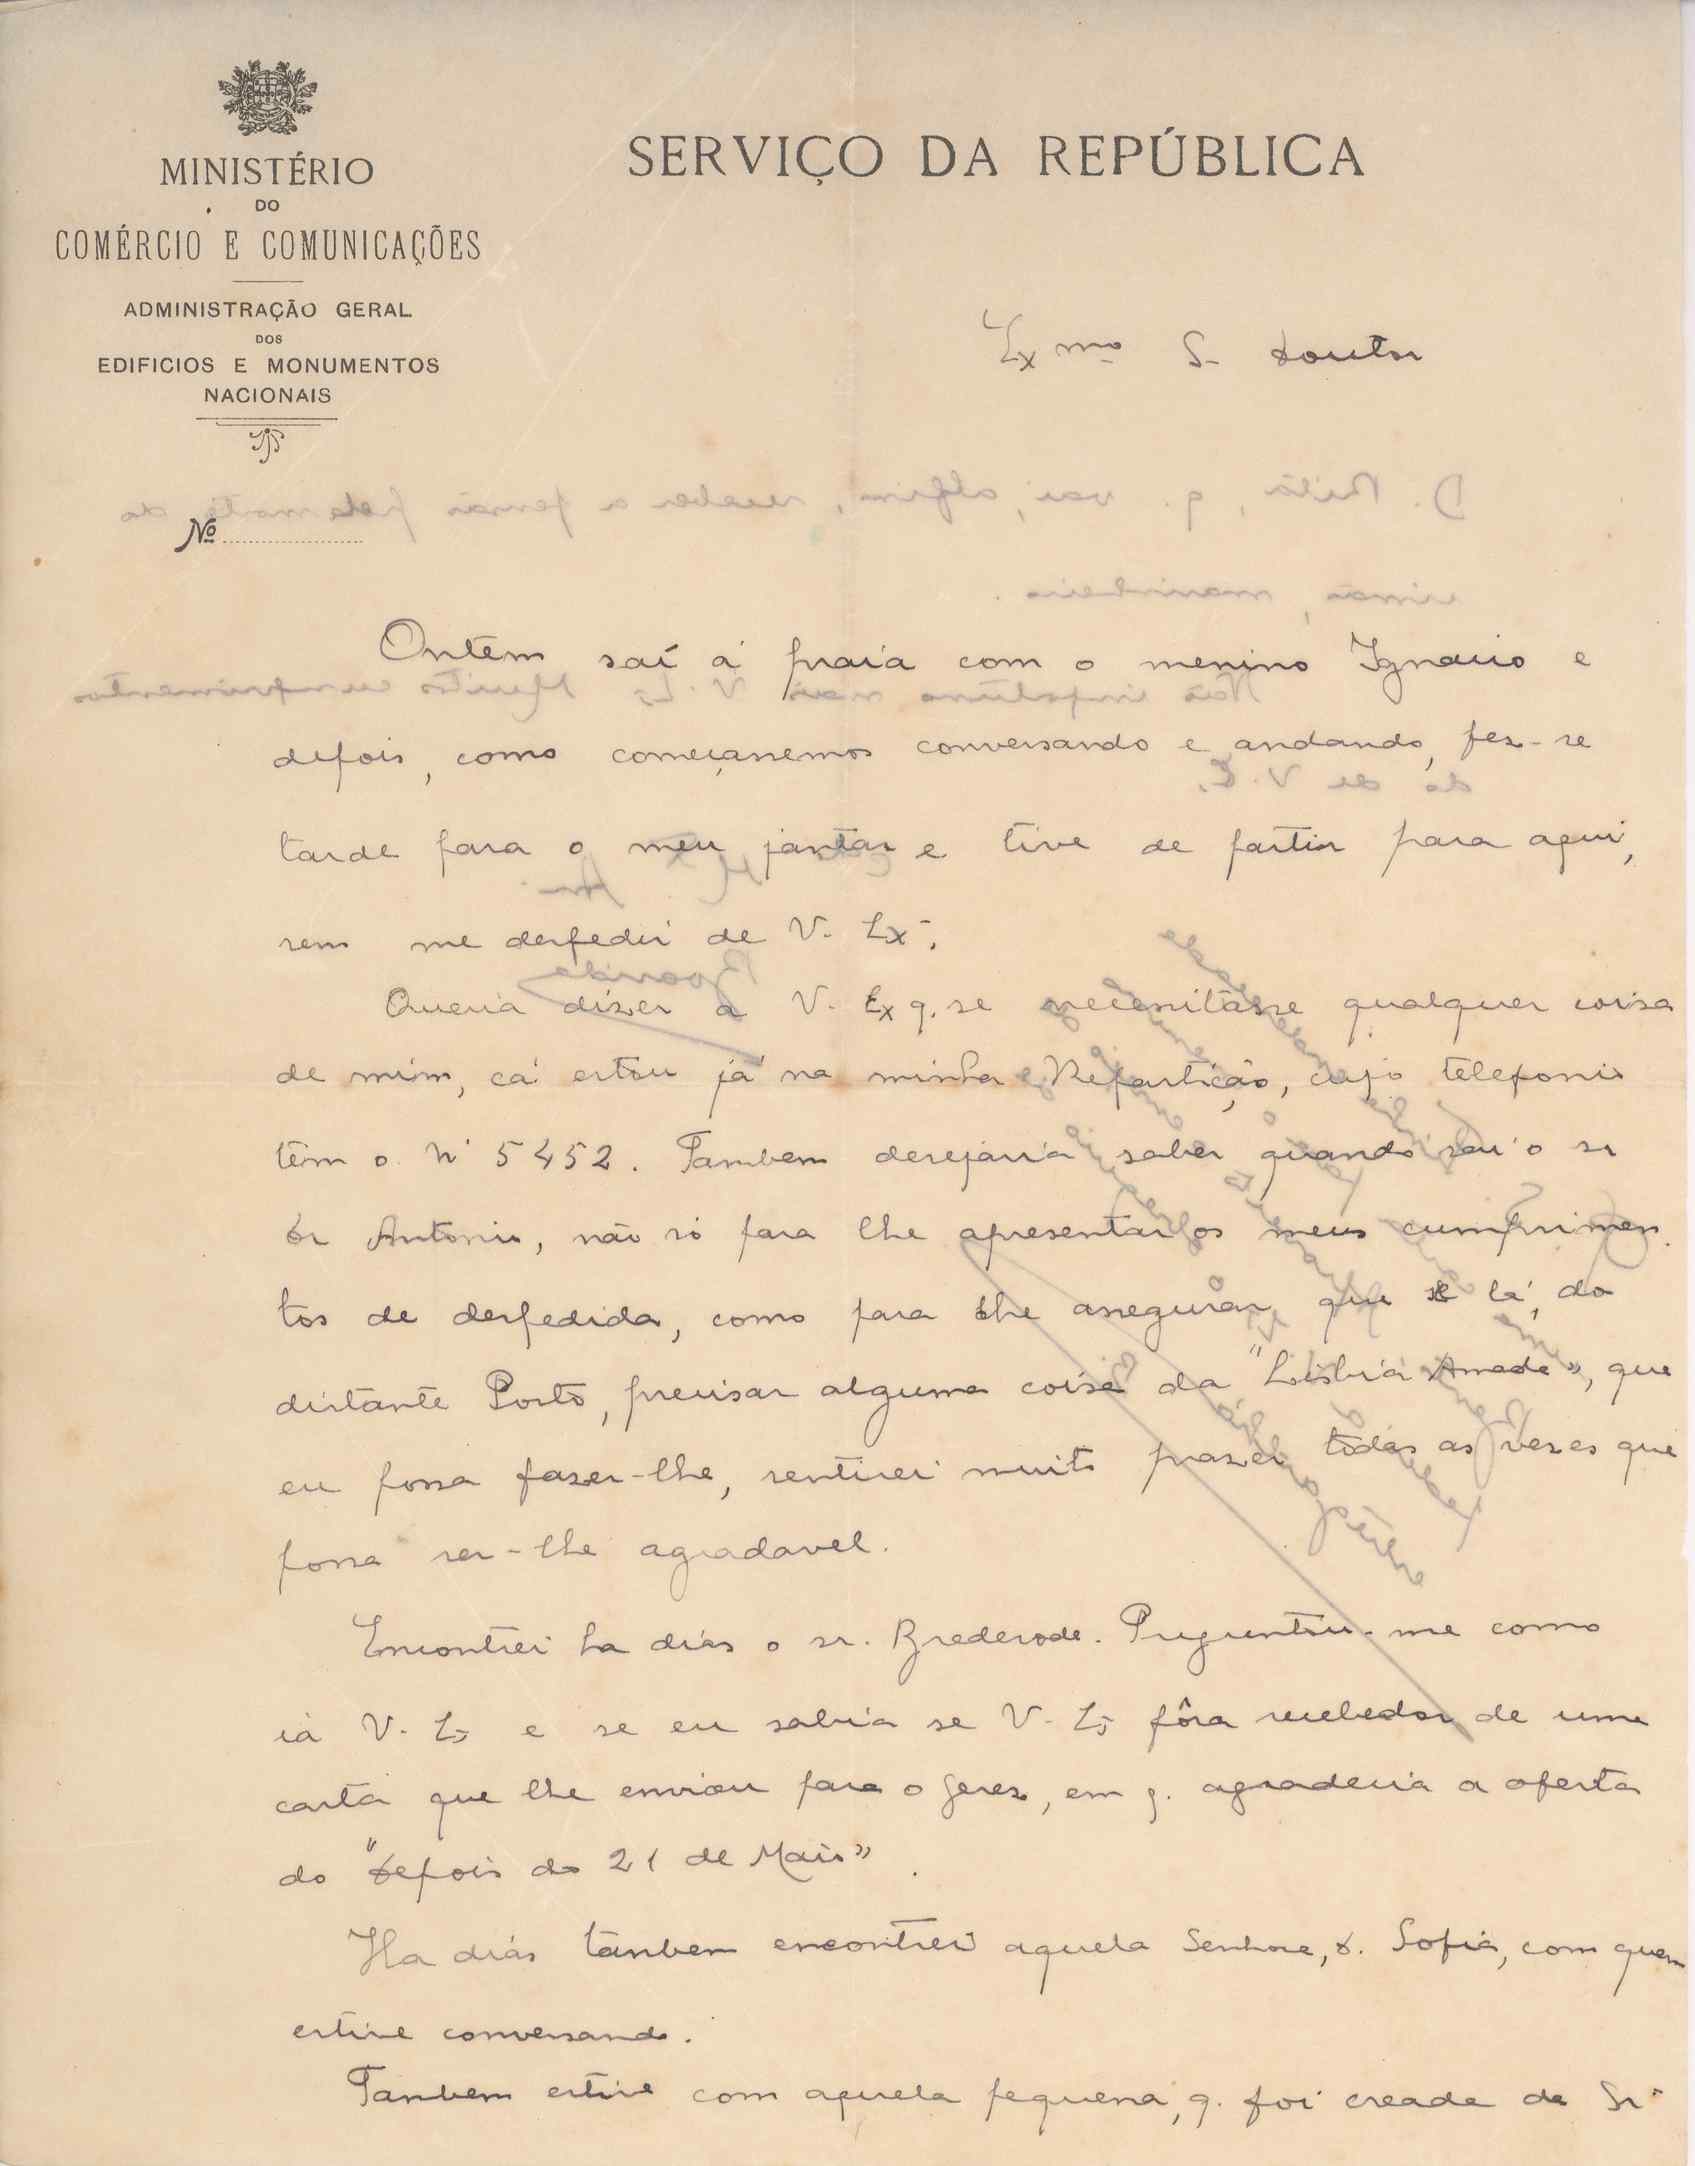 MINISTÉRIO
DO
COMÉRCIO E COMUNICAÇÕES
ADMINISTRAÇÃO GERAL
DOS
EDIFICIOS E MONUMENTOS
NACIONAIS
SERVIÇO DA REPÚBLICA
Exmo S. Doutor
Nº
Ontem saí á praia com o menino Ignacio e
depois, como começassemos conversando e andando, fez-se
tarde para o meu jantar e tive de partir para aqui,
sem me despedir de V. Ex.
Queria dizer a V. Ex q. se necessitasse qualquer coisa
de mim, cá estou já na minha Repartição, cujo telefone
têm o Nº 5452. Tambem desejaria saber quando sai o sr
Dr Antonio, não só para lhe apresentar os meus cumprimen-
tos de despedida, como para lhe assegurar que se lá, do
distante Porto, precisar alguma coisa da "Lisbia Amada", que
eu possa fazer-lhe, sentirei muito prazer todas as vezes que
possa ser-lhe agradavel.
Encontrei ha dias o sr. Brederode. Preguntou-me como
ia V. Ex e se eu sabia se V. Ex fôra recebedor de uma
carta que lhe enviou para o Gerez, em q. agradecia a oferta
do "Depois do 21 de Maio".
Ha dias tambem encontrei aquela Senhora, D. Sofia, com quem
estive conversando.
Tambem estive com aquela pequena, q. foi creada da Srª
D. Rita, q. vai, alfim, receber a pensão pela morte do
irmão, marinheiro.
Não importuno mais V. Ex Muitos cumprimentos
do de V. E.